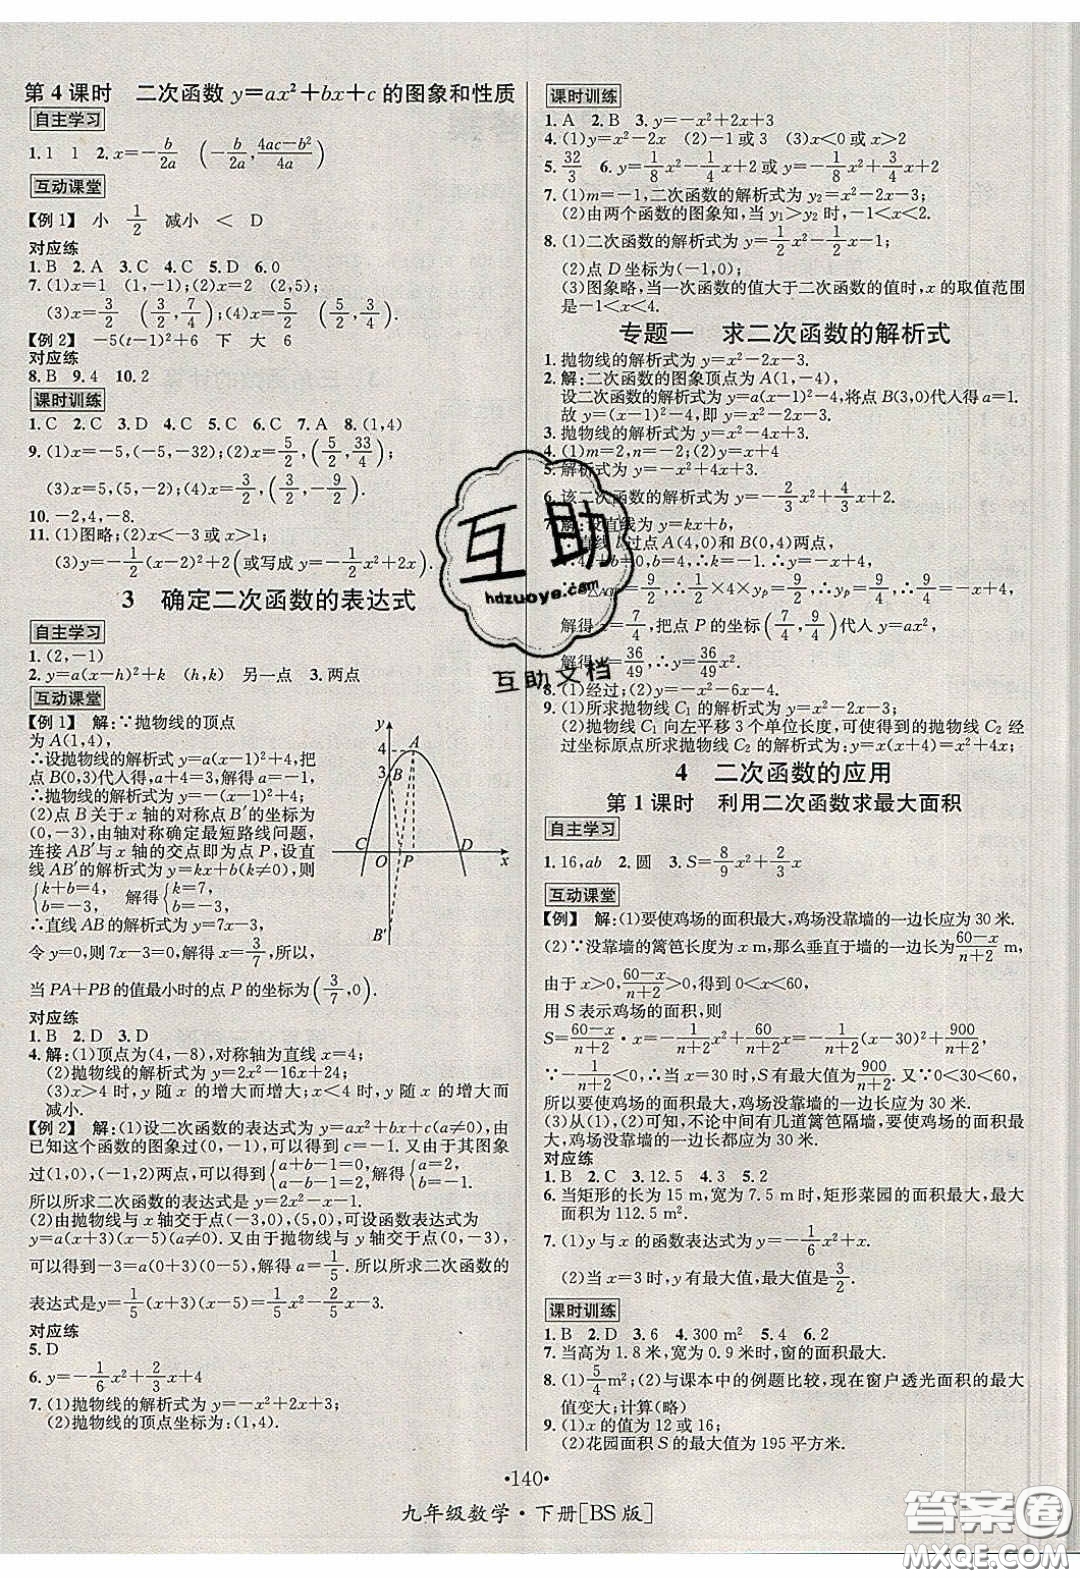 第4课时 二次函数y=ax²+bx+c的图象和性质
自主学习
1.1 1 2.x=-b/2a (-b/2a,(4ac-b²)/4a)
互动课堂
【例1】 小 1/2 减小 < D
对应练
1.B 2.A 3.C 4.C 5.D 6.0
7.(1)x=1 (1,-1);(2)x=2 (2,5);
(3)x=3/2 (3/2,7/4);(4)x=5/2 (5/2,3/4).
【例2】 -5(t-1)²+6 下 大 6
对应练
8.B 9.4 10.2
课时训练
1.C 2.C 3.C 4.D 5.D 6.B 7.A 8.(1,4)
9.(1)x=-5,(-5,-32);(2)x=5/2,(5/2,33/4);
(3)x=5,(5,-2);(4)x=3/2,(3/2,-9/4).
10.-2,4,-8.
11.(1)图略;(2)x<-3或x>1;
(3)y=-1/2(x-2)²+2(或写成y=-1/2x²+2x).
3 确定二次函数的表达式
自主学习
1.(2,-1)
2.y=a(x-h)²+k (h,k) 另一点 3.两点
互动课堂
【例1】 解:∵抛物线的顶点
为A(1,4),
∴设抛物线的解析式y=a(x-1)²+4,把
点B(0,3)代人得,a+4=3,解得a=-1,
∴抛物线的解析式为y=-(x-1)²+4;
(2)点B关于x轴的对称点B′的坐标为
(0,-3),由轴对称确定最短路线问题,
连接AB′与x轴的交点即为点P,设直
线AB′的解析式为y=kx+b(k≠0),则
{k+b=4, b=-3, 解得{k=7, b=-3,
∴直线AB的解析式为y=7x-3,
令y=0,则7x-3=0,解得x=3/7,所以,
当PA+PB的值最小时的点P的坐标为(3/7,0).
y
4
3
A
B
C
O
P
D
x
B′
对应练
1.B 2.D 3.D
4.解:(1)顶点为(4,-8),对称轴为直线x=4;
(2)抛物线的解析式为y=2x²-16x+24;
(3)x>4时,y随x的增大而增大;x<4时,y随x的增大而
减小.
【例2】 解:(1)设二次函数的表达式为y=ax²+bx+c(a≠0),由
已知这个函数的图象过(0,-1),可以得到c=-1.又由于其图象
过(1,0),(-1,2)两点,可以得到{a+b-1=0, a-b-1=2. 解这个方程组,得{a=2, b=-1.
所以所求二次函数的表达式是y=2x²-x-1.
(2)由抛物线与x轴交于点(-3,0),(5,0),可设函数表达式为
y=a(x+3)(x-5)(a≠0).又由于抛物线与y轴交于点(0,-3),
可以得到-3=a(0+3)(0-5).解得a=1/5.所以所求二次函数的
表达式是y=1/5(x+3)(x-5)=1/5x²-2/5x-3.
对应练
5.D
6.y=-1/6x²+2/3x+4
7.(1)抛物线的解析式为y=-x²+2x+3;
(2)抛物线的顶点坐标为:(1,4).
课时训练
1.A 2.B 3.y=-x²+2x+3
4.(1)y=x²-2x (2)-1或3 (3)x<0或x>2
5.32/3 6.y=1/8x²-1/4x+2或y=-1/8x²+3/4x+2
7.(1)m=-1,二次函数的解析式为y₂=-x²+2x+3;
(2)由两个函数的图象知,当y₁>y₂时,-1<x<2.
8.(1)二次函数的解析式为y=1/2x²-1/2x-1;
(2)点D坐标为(-1,0);
(3)图象略,当一次函数的值大于二次函数的值时,x的取值范围
是-1<x<4.
专题一 求二次函数的解析式
1.抛物线的解析式为y=x²-2x-3.
2.解:二次函数的图象顶点为A(1,-4),
设二次函数的解析式为y=a(x-1)²-4,将点B(3,0)代人得a=1.
故y=(x-1)²-4,即y=x²-2x-3.
3.抛物线的解析式为y=x²-4x+3.
4.(1)m=2,n=-2;(2)y=x²+x-2.
5.解析式为y=-x²+4x+3.
6.该二次函数的解析式为y=-2/3x²+4/3x+2.
7.解:设直线为y=kx+b,
∵直线l过点A(4,0)和B(0,4)两点,
∴4k+b=0,b=4.∴k=-1.∴y=-x+4.
=9/2,∴1/2×4×yₚ=9/2,∴yₚ=9/4.∴9/4=-x+4,
解得x=7/4,把点P的坐标(7/4,9/4)代人y=ax²,
解得a=36/49,∴y=36/49x².
8.(1)经过;(2)y=-2x²-6x-4.
9.(1)所求抛物线C₁的解析式为y=(x-1)²-4;
(2)抛物线C₁向左平移3个单位长度,可使得到的抛物线C₂经
过坐标原点所求抛物线C₂的解析式为:y=x(x+4)=x²+4x;
4 二次函数的应用
第1课时 利用二次函数求最大面积
自主学习
1.16,ab 2.圆 3.S=8/9x²+2/3x
互动课堂
【例】 解:(1)要使鸡场的面积最大,鸡场没靠墙的一边长应为30米.
(2)∵没靠墙的篱笆长度为x m,那么垂直于墙的一边长为(60-x)/(n+2) m,
由于x>0,(60-x)/(n+2)>0,得0<x<60,
用S表示鸡场的面积,
S=(60-x)/(n+2)·x=-1/(n+2)x²+60/(n+2)x=-1/(n+2)(x-30)²+900/(n+2)
∵-1/(n+2)<0,∴当x=30时,S有最大值900/(n+2).又∵0<30<60,
所以要使鸡场的面积最大,鸡场没靠墙的一边长应为30米.
(3)从(1),(2)可知,不论中间有几道篱笆隔墙,要使鸡场面积最
大,鸡场没靠墙的一边长都应为30米.
对应练
1.B 2.C 3.12.5 4.3 5.2
6.当矩形的长为15 m,宽为7.5 m时,矩形菜园的面积最大,最大
面积为112.5 m².
7.(1)y与x的函数表达式为y=-1/6x²+x.
(2)当x=3时,y有最大值,最大值是3/2.
课时训练
1.B 2.D 3.6 4.300 m² 5.4 6.2
7.当高为1.8米,宽为0.9米时,窗的面积最大.
8.(1)5/4m²;(2)与课本中的例题比较,现在窗户透光面积的最大
值变大;计算(略)
9.(1)x的值为12或16;
(2)花园面积S的最大值为195平方米.
·140·
九年级数学·下册[BS版]
互助
hdzuoye.com
互助文档
答案圈
MXQE.COM